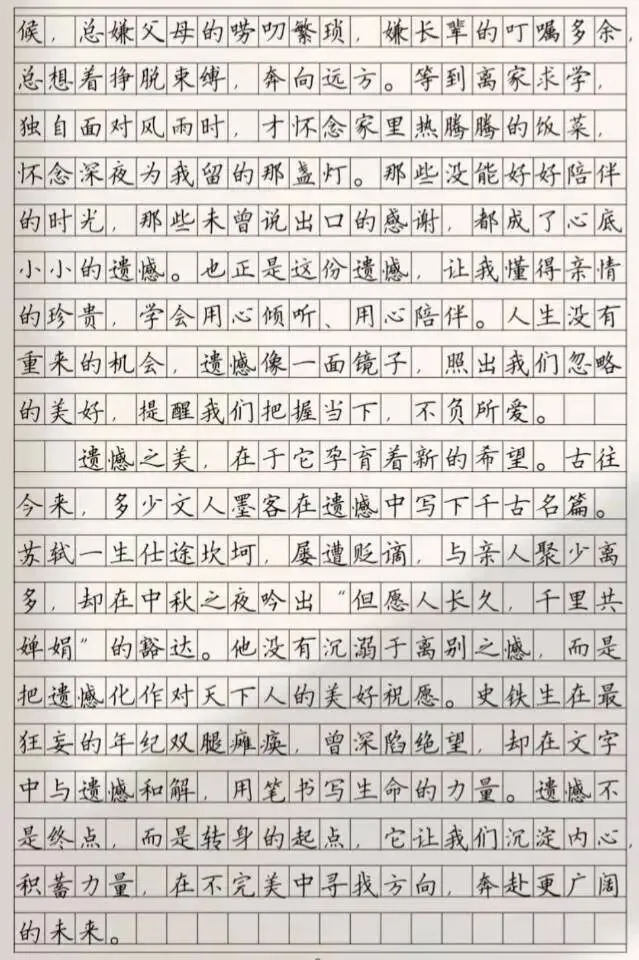 候，总嫌父母的唠叨繁琐，嫌长辈的叮嘱多余，
总想着挣脱束缚，奔向远方。等到离家求学，
独自面对风雨时，才怀念家里热腾腾的饭菜，
怀念深夜为我留的那盏灯。那些没能好好陪伴
的时光，那些未曾说出口的感谢，都成了心底
小小的遗憾。也正是这份遗憾，让我懂得亲情
的珍贵，学会用心倾听、用心陪伴。人生没有
重来的机会，遗憾像一面镜子，照出我们忽略
的美好，提醒我们把握当下，不负所爱。
遗憾之美，在于它孕育着新的希望。古往
今来，多少文人墨客在遗憾中写下千古名篇。
苏轼一生仕途坎坷，屡遭贬谪，与亲人聚少离
多，却在中秋之夜吟出“但愿人长久，千里共
婵娟”的豁达。他没有沉溺于离别之憾，而是
把遗憾化作对天下人的美好祝愿。史铁生在最
狂妄的年纪双腿瘫痪，曾深陷绝望，却在文字
中与遗憾和解，用笔书写生命的力量。遗憾不
是终点，而是转身的起点，它让我们沉淀内心，
积蓄力量，在不完美中寻找方向，奔赴更广阔
的未来。